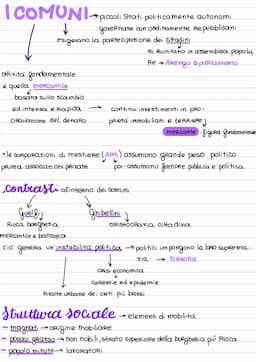 I COMUNI → piccoli Stati politicamente autonomi
governate con ordinamento repubblicani
esigevano la partecipazione dei cittadini
si riunivano in assemblea popola
Re → Arengo o parlamento
attività fondamentale
è quella mercantile
basata sullo scambio
ed intensa e rapida → continui investimenti in pro-
circolazione del denaro prietà immobiliari e terriere
mercante: figura fondamentale
• le corporazioni di mestiere (Arti) assumono grande peso politico
prima: associazioni private poi: assumono funzione pubblica e politica
contrasti all'interno dei comuni
Guelfi Ghibellini
Ricca borghesia aristocrazia cittadina
mercantile e bancaria
ciò genera un'instabilità politica → politici impongono la loro suprema-
zia → SIGNORIE
crisi economica
carestie ed epidemie
rivolte urbane dei ceti più bassi
Struttura sociale → elementi di mobilità
– magnati → origine nobiliare
– popolo grasso → non nobili, strato superiore della borghesia più ricca
– popolo minuto → lavoratori